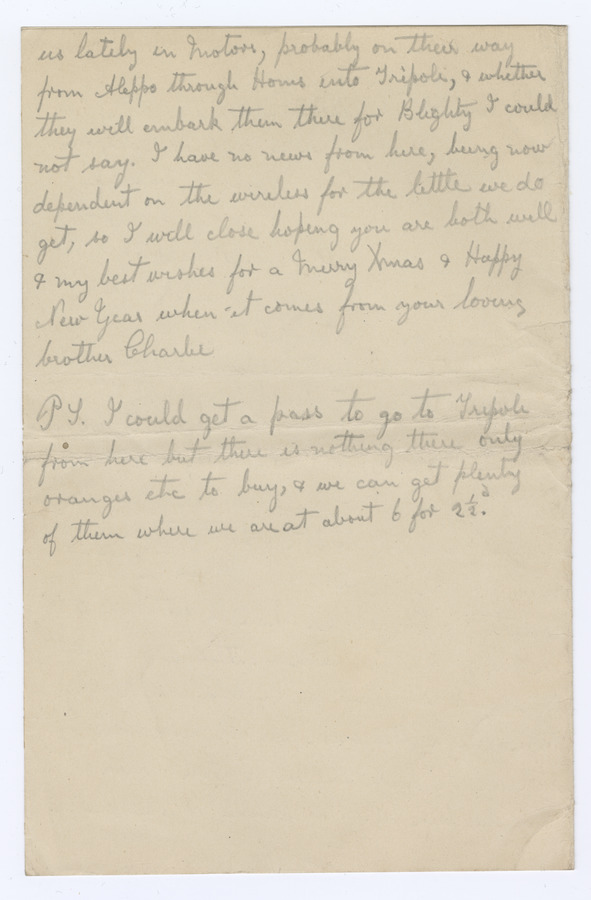 us lately in Motors, probably on their way
from Aleppo through Homs into Tripoli, & whether
they will embark them there for Blighty I could
not say. I have no news from here, being now
dependent on the wireless for the little we do
get, so I will close hoping you are both well
& my best wishes for a Merry Xmas & Happy
New Year when it comes from your loving
brother Charlie
P S. I could get a pass to go to Tripoli
from here but there is nothing there only
oranges etc to buy, & we can get plenty
of them where we are at about 6 for 2½d.